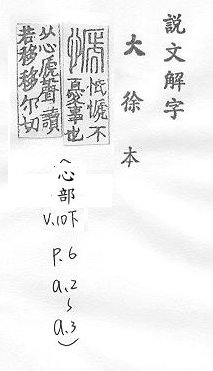 說文解字
大徐本
㥴 忯㥴不
憂事也
从心虒聲讀
若移移尔切
(心部
V.10下
P.6
a.2
~
a.3)